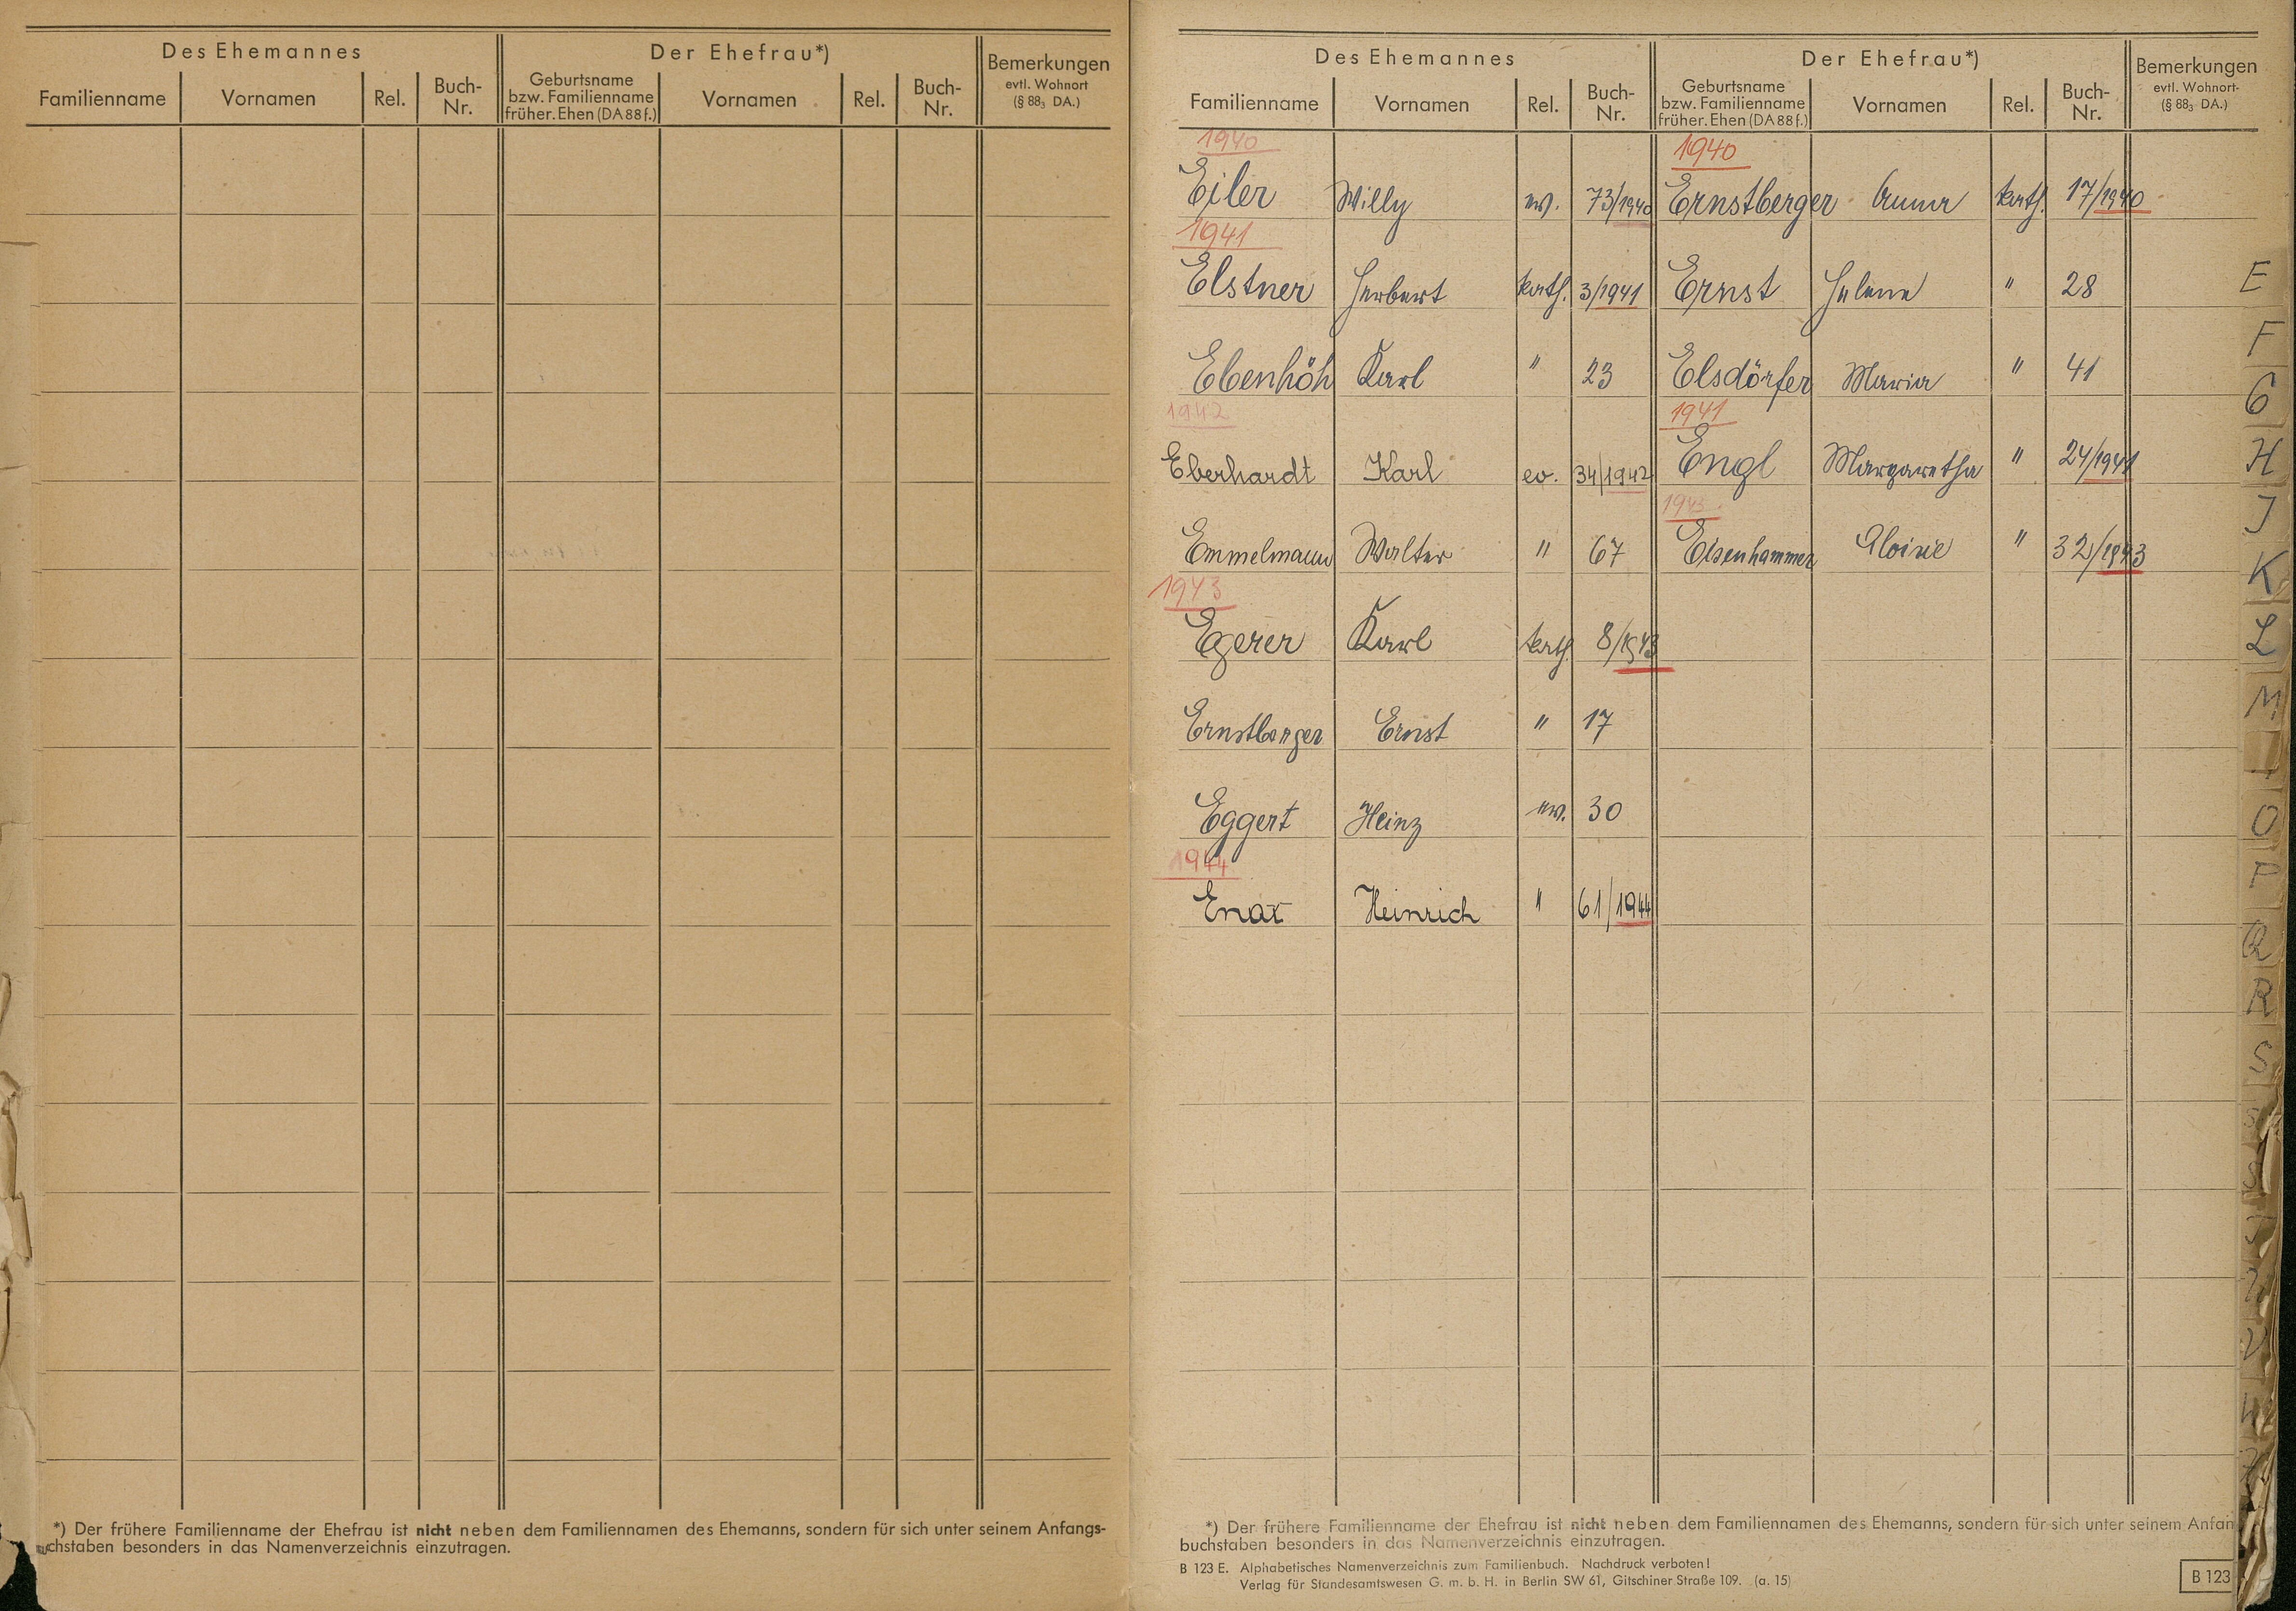 Des Ehemannes Der Ehefrau*) Bemerkungen evtl. Wohnort (§ 88₃ DA.)
Familienname Vornamen Rel. Buch-Nr. Geburtsname bzw. Familienname früher. Ehen (DA 88 f.) Vornamen Rel. Buch-Nr.
*) Der frühere Familienname der Ehefrau ist nicht neben dem Familiennamen des Ehemanns, sondern für sich unter seinem Anfangs-
chstaben besonders in das Namenverzeichnis einzutragen.
Des Ehemannes Der Ehefrau*) Bemerkungen evtl. Wohnort- (§ 88₃ DA.)
Familienname Vornamen Rel. Buch-Nr. Geburtsname bzw. Familienname früher. Ehen (DA 88 f.) Vornamen Rel. Buch-Nr.
1940 1940
Eiler Willy ev. 73/1940 Ernstberger Anna kath. 17/1940
1941
Elstner Herbert kath. 3/1941 Ernst Helene " 28
Ebenhöh Karl " 23 Elsdörfer Maria " 41
1942 1941
Eberhardt Karl ev. 34/1942 Engl Margaretha " 24/1941
1943
Emmelmann Walter " 67 Eisenhammer Aloisie " 32/1943
1943
Egerer Karl kath. 8/1943
Ernstberger Ernst " 17
Eggert Heinz ev. 30
1944
Enax Heinrich " 61/1944
*) Der frühere Familienname der Ehefrau ist nicht neben dem Familiennamen des Ehemanns, sondern für sich unter seinem Anfan
buchstaben besonders in das Namenverzeichnis einzutragen.
B 123 E. Alphabetisches Namenverzeichnis zum Familienbuch. Nachdruck verboten!
Verlag für Standesamtswesen G. m. b. H. in Berlin SW 61, Gitschiner Straße 109. (a. 15)
B 123
E
F
G
H
J
K
L
M
O
P
Q
R
S
V
W
Z